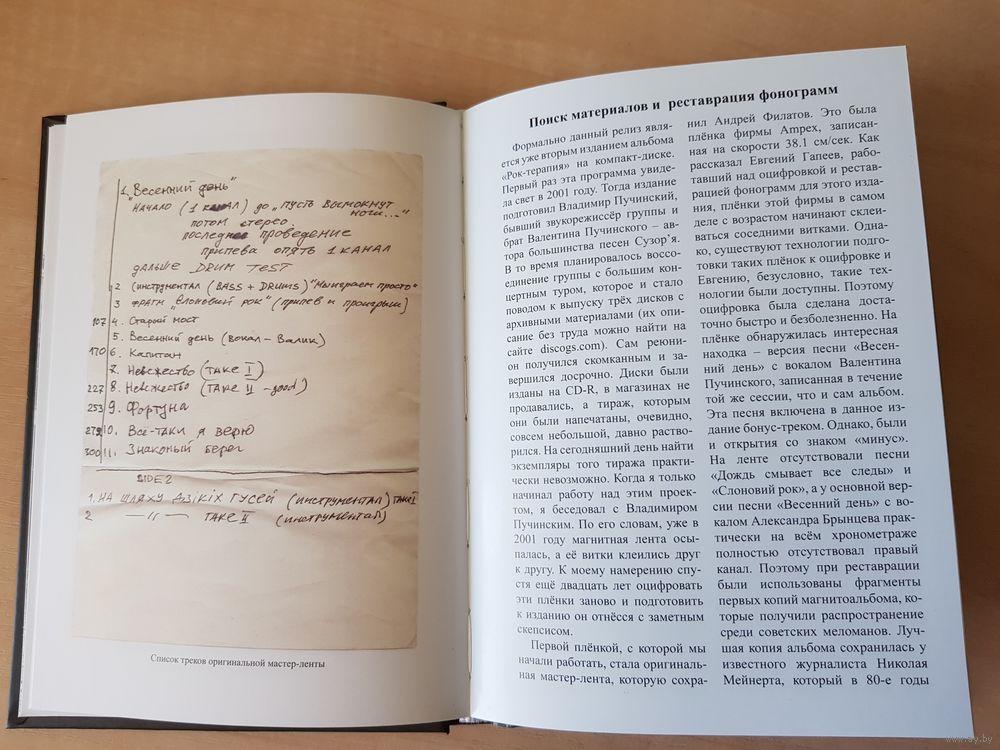 1. „Весенний день"
НАЧАЛО (1 КАНАЛ) до „ПУСТЬ ВЗМОКНУТ
НОЧИ..."
ПОТОМ СТЕРЕО
ПОСЛЕДНЕЕ ПРОВЕДЕНИЕ
ПРИПЕВА ОПЯТЬ 1 КАНАЛ
ДАЛЬШЕ DRUM TEST
2 (ИНСТРУМЕНТАЛ (BASS + DRUMS) "Выиграем просто"
3 ФРАГМ "Слоновий рок" (ПРИПЕВ И ПРОИГРЫШ)
107 4. Старый мост
5. Весенний день (вокал – Валик)
170 6. Капитан
7. Невежество (TAKE I)
227 8. Невежество (TAKE II – good)
253 9. Фортуна
279 10. Всё-таки я верю
300 11. Знакомый берег
SIDE 2
1. НА ШЛЯХУ ДЗIКIХ ГУСЕЙ (ИНСТРУМЕНТАЛ) TAKE I
2 —//— TAKE II (ИНСТРУМЕНТАЛ)
Список треков оригинальной мастер-ленты
Поиск материалов и реставрация фонограмм
Формально данный релиз явля-
ется уже вторым изданием альбома
«Рок-терапия» на компакт-диске.
Первый раз эта программа увиде-
ла свет в 2001 году. Тогда издание
подготовил Владимир Пучинский,
бывший звукорежиссёр группы и
брат Валентина Пучинского – ав-
тора большинства песен Сузор’я.
В то время планировалось воссо-
единение группы с большим кон-
цертным туром, которое и стало
поводом к выпуску трёх дисков с
архивными материалами (их опи-
сание без труда можно найти на
сайте discogs.com). Сам реюни-
он получился скомканным и за-
вершился досрочно. Диски были
изданы на CD-R, в магазинах не
продавались, а тираж, которым
они были напечатаны, очевидно,
совсем небольшой, давно раство-
рился. На сегодняшний день найти
экземпляры того тиража практи-
чески невозможно. Когда я только
начинал работу над этим проек-
том, я беседовал с Владимиром
Пучинским. По его словам, уже в
2001 году магнитная лента осы-
палась, а её витки клеились друг
к другу. К моему намерению спу-
стя ещё двадцать лет оцифровать
эти плёнки заново и подготовить
к изданию он отнёсся с заметным
скепсисом.
Первой плёнкой, с которой мы
начали работать, стала оригиналь-
ная мастер-лента, которую сохра-
нил Андрей Филатов. Это была
плёнка фирмы Ampex, записан-
ная на скорости 38.1 см/сек. Как
рассказал Евгений Гапеев, рабо-
тавший над оцифровкой и рестав-
рацией фонограмм для этого изда-
ния, плёнки этой фирмы в самом
деле с возрастом начинают склеи-
ваться соседними витками. Одна-
ко, существуют технологии подго-
товки таких плёнок к оцифровке и
Евгению, безусловно, такие тех-
нологии были доступны. Поэтому
оцифровка была сделана доста-
точно быстро и безболезненно. На
плёнке обнаружилась интересная
находка – версия песни «Весен-
ний день» с вокалом Валентина
Пучинского, записанная в течение
той же сессии, что и сам альбом.
Эта песня включена в данное из-
дание бонус-треком. Однако, были
и открытия со знаком «минус».
На ленте отсутствовали песни
«Дождь смывает все следы» и
«Слоновий рок», а у основной вер-
сии песни «Весенний день» с во-
калом Александра Брынцева прак-
тически на всём хронометраже
полностью отсутствовал правый
канал. Поэтому при реставрации
были использованы фрагменты
первых копий магнитоальбома, ко-
торые получили распространение
среди советских меломанов. Луч-
шая копия альбома сохранилась у
известного журналиста Николая
Мейнерта, который в 80-е годы
www.ay.by